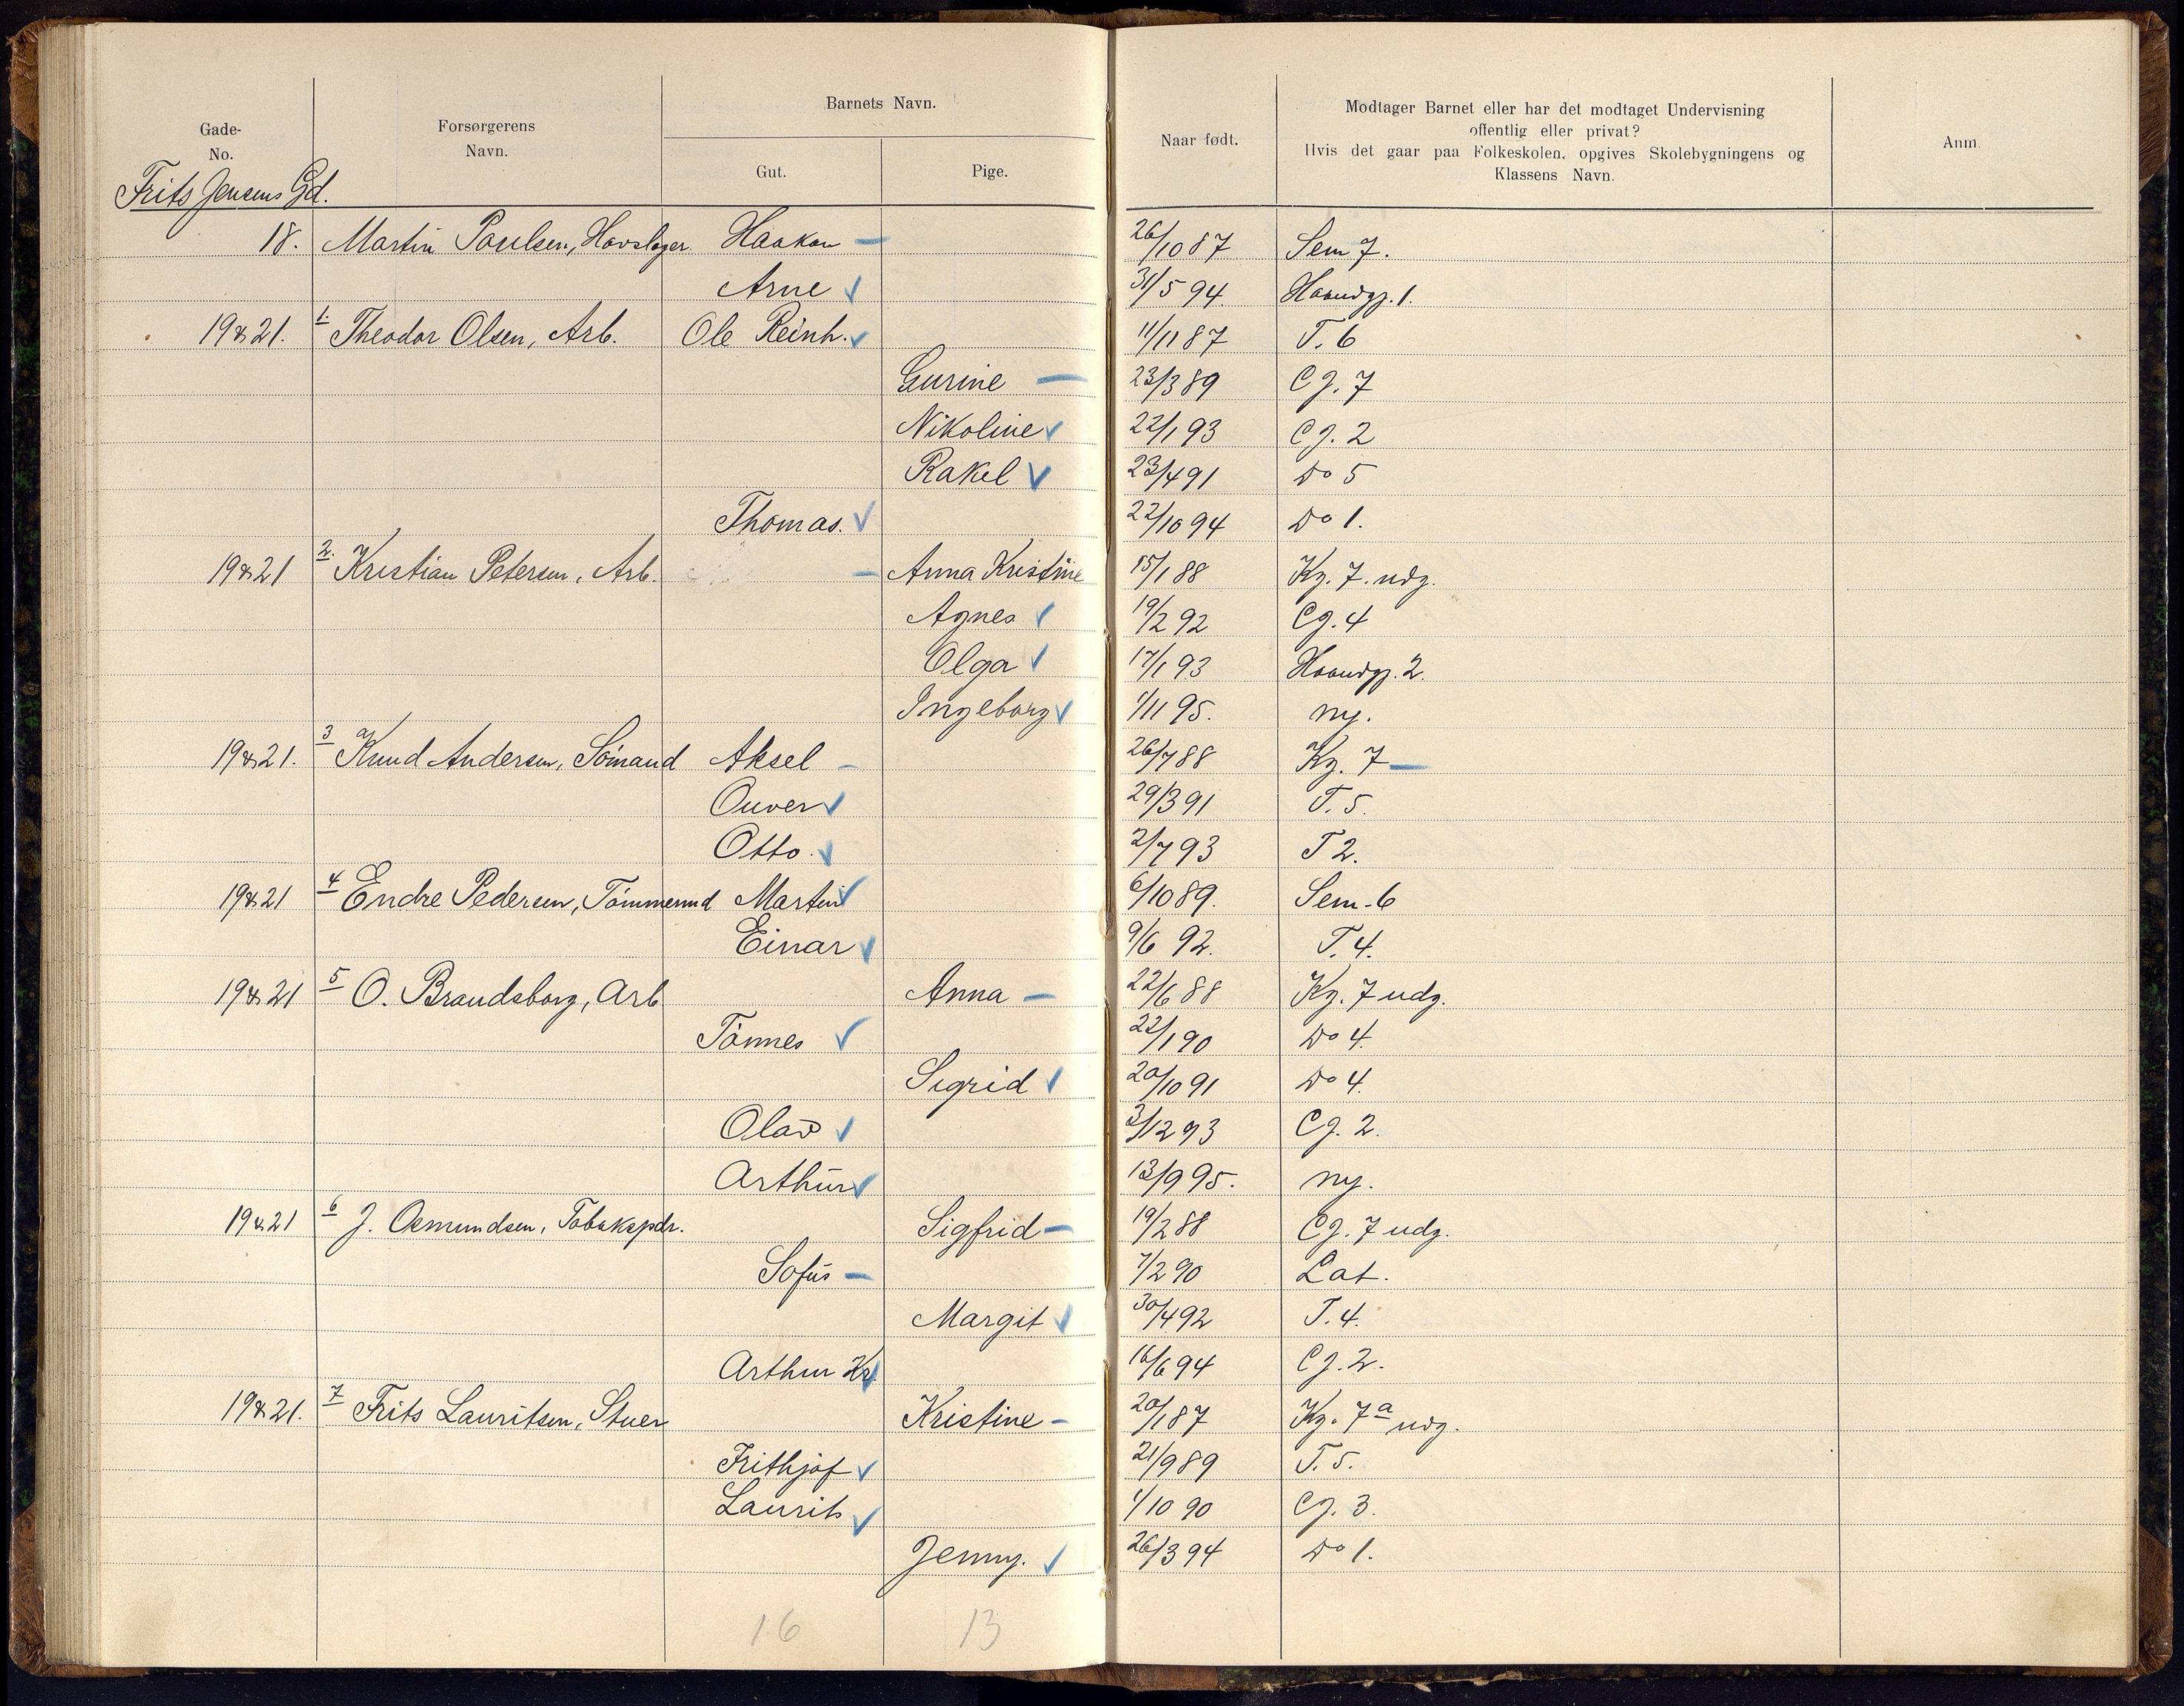 Gade-No. Forsørgerens Navn. Barnets Navn. Gut. Pige. Naar født. Modtager Barnet eller har det modtaget Undervisning offentlig eller privat? Hvis det gaar paa Folkeskolen, opgives Skolebygningens og Klassens Navn. Anm.
Frits Jensens Gd.
18. Martin Paulsen, Hovslager Haakon — 26/10 87 Sem 7.
Arne ✓ 31/5 94. Haandgj. 1.
19&21. 1. Theodor Olsen, Arb. Ole Reinh. ✓ 11/11 87 T. 6
Gurine — 23/3 89 Cg. 7
Nikoline ✓ 22/1 93 Cg. 2
Rakel ✓ 23/4 91 Do 5
Thomas. ✓ 22/10 94 Do 1.
19&21 2. Kristian Petersen, Arb. — Anna Kristine 15/1 88 Kg. 7. udg.
Agnes ✓ 19/2 92 Cg. 4
Olga ✓ 17/1 93 Haandgj. 2.
Ingeborg ✓ 1/11 95. ny.
19&21. 3 Knud Andersen, Sömand Aksel — 26/7 88 Kg. 7 —
Ouver ✓ 29/3 91 T. 5.
Otto. ✓ 2/7 93 T 2.
19&21 4 Endre Pedersen, Tömmermd Martin ✓ 6/10 89. Sem. 6
Einar ✓ 9/6 92. T. 4.
19&21 5 O. Brandsborg, Arb Anna — 22/6 88 Kg. 7 udg.
Tönnes ✓ 22/1 90 Do 4.
Sigrid ✓ 20/10 91 Do 4.
Olav ✓ 3/12 93 Cg. 2.
Arthur ✓ 13/9 95. ny.
19&21 6 J. Osmundsen, Tobakspdr. Sigfrid — 19/2 88 Cg. 7 udg.
Sofus — 7/2 90 Lat.
Margit ✓ 30/4 92 T. 4.
Arthur Kr. ✓ 16/6 94 Cg. 2.
19&21. 7 Frits Lauritsen, Stuer Kristine — 20/1 87 Kg. 7a udg.
Frithjof ✓ 21/9 89 T. 5.
Laurits ✓ 1/10 90 Cg. 3.
Jenny. ✓ 26/3 94 Do 1.
16 13